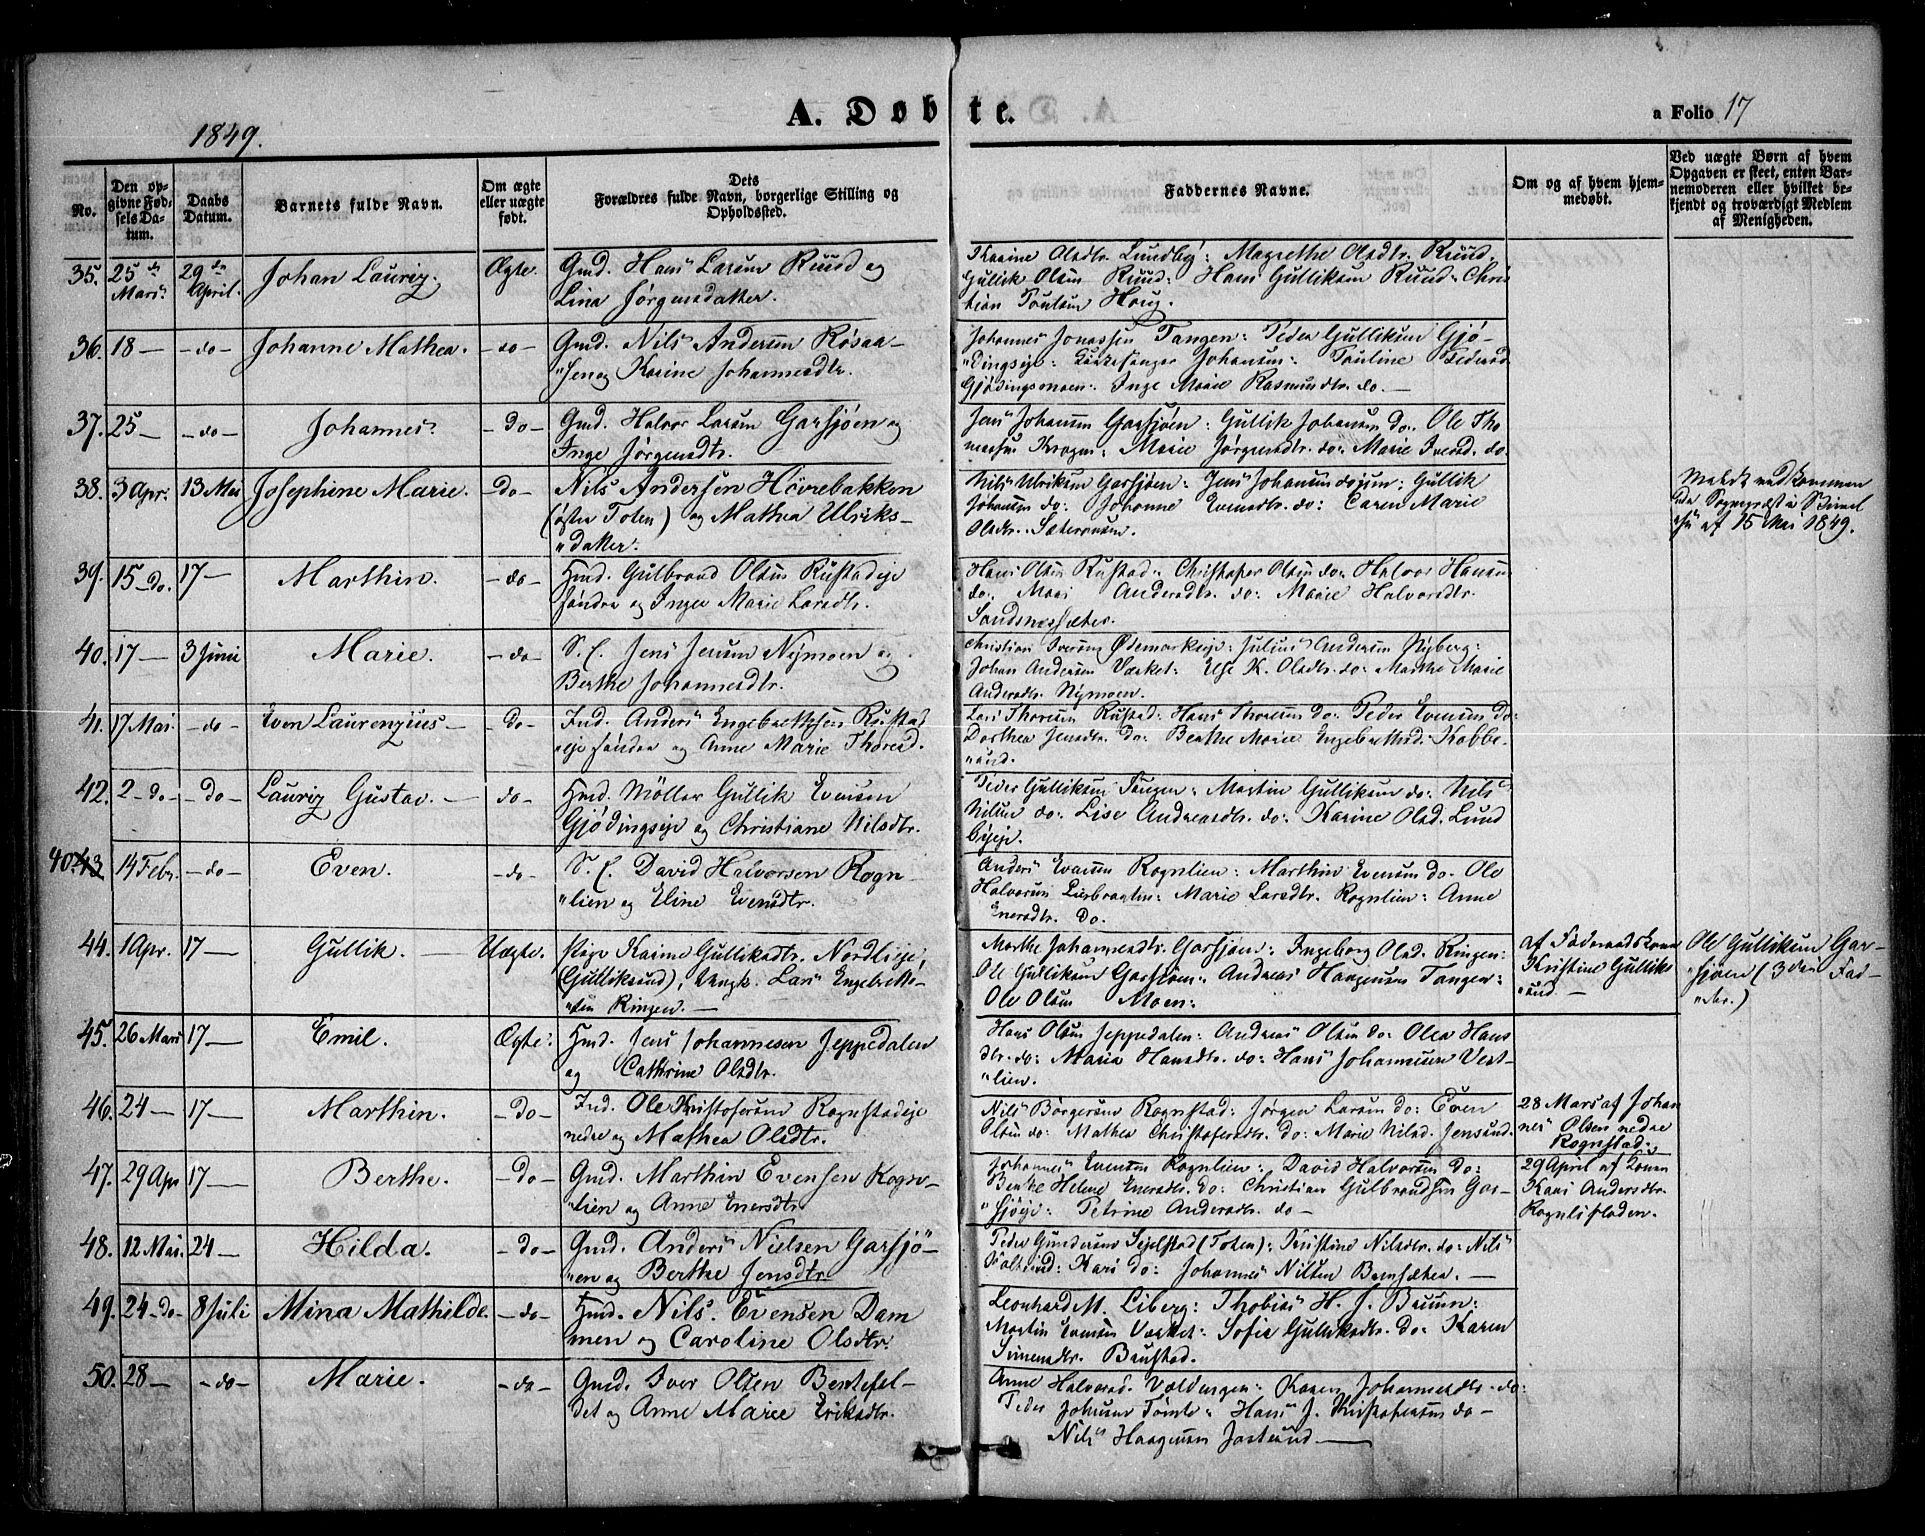 1849.
A. Døbte.
a Folio 17
No.
Den op-
givne Fød-
sels Da-
tum.
Daabs
Datum.
Barnets fulde Navn.
Om ægte
eller uægte
født.
Dets
Forældres fulde Navn, borgerlige Stilling og
Opholdssted.
Faddernes Navne.
Om og af hvem hjem-
medøbt.
Ved uægte Børn af hvem
Opgaven er skeet, enten Bar-
nemoderen eller hvilket be-
kjendt og troværdigt Medlem
af Menigheden.
35. 25de Mars. 29de April. Johan Lauriz. Ægte. Gmd. Hans Larsen Ruud og
Lina Jørgensdatter.
Karine Olsdtr. Lundby: Magrethe Olsdtr. Ruud.
Gullik Olsen Ruud: Hans Gulliksen Ruud: Chris
tian Poulsen Houg.
36. 18 — - do - Johanne Mathea. - do - Gmd. Nils Andersen Røsaa-
"sen og Karine Johannesdtr.
Johannes Jonassen Tangen: Peder Gulliksen Gjø-
"dingseje: Johansen: Pauline Pedersd.
Gjødingsmoen: Inge Marie Rasmusdtr. do. —
37. 25 — - do - Johannes. - Do - Gmd. Halvor Larsen Garsjøen og
Inge Jørgensdtr.
Jens Johansen Garsjøen: Gullik Johansen do. Ole Tho
massen Kragen: Marie Jørgensdtr. do: Marie Iversd. do
38. 3 Apr. 13 Mai Josephine Marie. - Do - Nils Andersen Høvrebakken
(øster Toten) og Mathea Ulriks-
"datter.
Nils Ulriksen Garsjøen: Jens Johansen : Gullik
Johansen do: Johanne Evensdtr. do: Caren Marie
Olsdtr. Sætrangen.
vedkommen
Sogneprest i
af 15 Mai 1849.
39. 15 - Do. 17 — Marthin. - do - Hmd. Gulbrand Olsen Rustadeje
søndre og Inger Marie Larsdtr.
Hans Olsen Rustad: Christofer Olsen do: Halvor Hansen
do. Mari Andersdtr. do: Marie Halvorsdtr.
Sandnessæter.
40. 17 — 3 Juni Marie. - do - S. E. Jens Jensen Nymoen og
Berthe Johannesdtr.
Christian Iversen Ødemarkseje: Julius Andersen Nyberg:
Johan Andersen Værket: Else K. Olsdtr. do: Marthe Marie
Andersdtr. Nymoen.
41. 17 Mai. - do - Even Laurenzius — - Do - Ind. Anders Engebrettsen Rustad
eje søndre og Anne Marie Thoresd.
Lars Thoresen Rustad: Hans Thoresen do: Peder Evensen do:
Dorthea Jensdtr. do: Berthe Marie Engebrettsd. Kobbe-
"rud.
42. 2 - do - - Do - Lauriz Gustav. — do - Hmd. Møller Gullik Evensen
Gjødingseje og Christiane Nilsdtr.
Peder Gulliksen Tangen: Martin Gulliksen do: Nils
Nilsen do: Lise Andreasdtr. do: Karine Olsd. Lund
byeje.
40. 43 14 Febr. - do - Even. - do - S. E. David Halvorsen Rogn-
"lien og Eline Evensdtr.
Anders Evensen Rognlien: Marthin Evensen do. Ole
Halvorsen : Marie Larsdtr. Rognlien: Anne
Enersdtr. Do.
44. 1 Apr. 17 — Gullik. — Uægte. Pige Karine Gulliksdtr. Nordlieje,
(Gulliksrud), Ungk. Lars Engebrett-
"sen Ringen. —
Marthe Johannesdtr. Garsjøen: Ingeborg Olsd. Ringen:
Ole Gulliksen Garsjøen: Andreas Haagensen Tangen:
Ole Olsen Moen:
af Føderaadskone
Kristine Gulliks
"rud. —
Ole Gulliksen Gar-
"sjøen (3die Fad-
"der.)
45. 26 Mars 17 — Emil. Ægte: Hmd. Jens Johannesen Jeppedalen
og Cathrine Olsdtr.
Hans Olsen Jeppedalen: Andreas Olsen do: Olea Hans
dtr. do: Maria Hansdtr. do: Hans Johannesen Vest-
"lien.
46. 24 — 17 — Marthin. - Do - Ind. Ole Kristofersen Rognstadeje
nedre og Mathea Olsdtr.
Nils Børgersen Rognstad: Jørgen Larsen do: Even
Olsen do: Mathea Christofersdtr. do: Marie Nilsd. Jensrud.
28 Mars af Johan
nes Olsen nedre
Rognstad.
47. 29 Apr 17 — Berthe. - Do - Gmd. Marthin Evensen Rogn-
"lien og Anne Enersdtr.
Johannes Evensen Rognlien: David Halvorsen do:
Berthe Helene Enersdtr. do: Christian Gulbrandsen Gar-
"sjøeje: Petrine Andersdtr. do —
29 April af Konen
Kari Andersdtr.
48. 12 Mai. 24 — Hilda. - Do - Gmd. Anders Nielsen Garsjö-
"en og Berthe Jensdtr.
Peder Gundersen (Toten): Kristine Nilsdtr. do: Nils
: Kari do: Johannes Nilsen . —
49. 24 - Do - 8 Juli Mina Mathilde. - do - Hmd. Nils Evensen Dam
men og Caroline Olsdtr.
Leonhard M. Liberg: Thobias H. J. Bruun:
Martin Evensen Værket: Sofie Gulliksdtr. do: Karen
Simensdtr. Brustad.
50. 28 — - do - Marie. - do - Gmd. Iver Olsen Bentefal-
"det og Anne Marie Eriksdtr.
Anne Halvorsd. Valdengen: Karen Johannesdtr. do:
Peder Johnsen Tømte: Hans J. Kristofersen do —
Nils Haagensen Jøstrud —